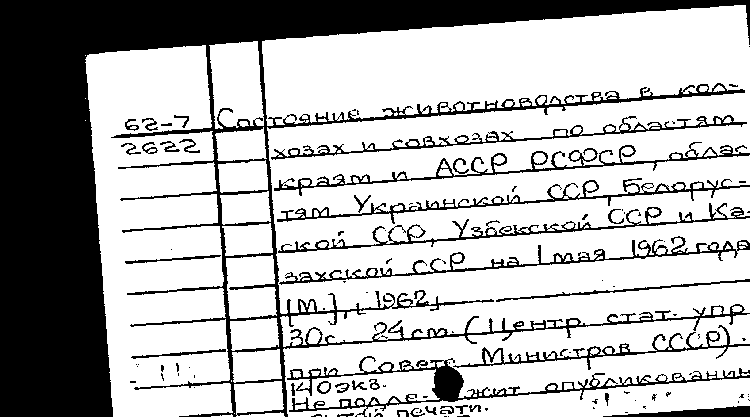 62-7 Состояние животноводства в кол-
2622 хозах и совхозах по областям
краям и АССР РСФСР, облас
тям Украинской ССР, Белорус-
ской ССР, Узбекской ССР и Ка-
захской ССР на 1 мая 1962 года
[М.], 1962,
30с. 24см. (Центр. стат. упр
при Совете Министров СССР).
140экз.
Не подле- жит опубликовани
печати.